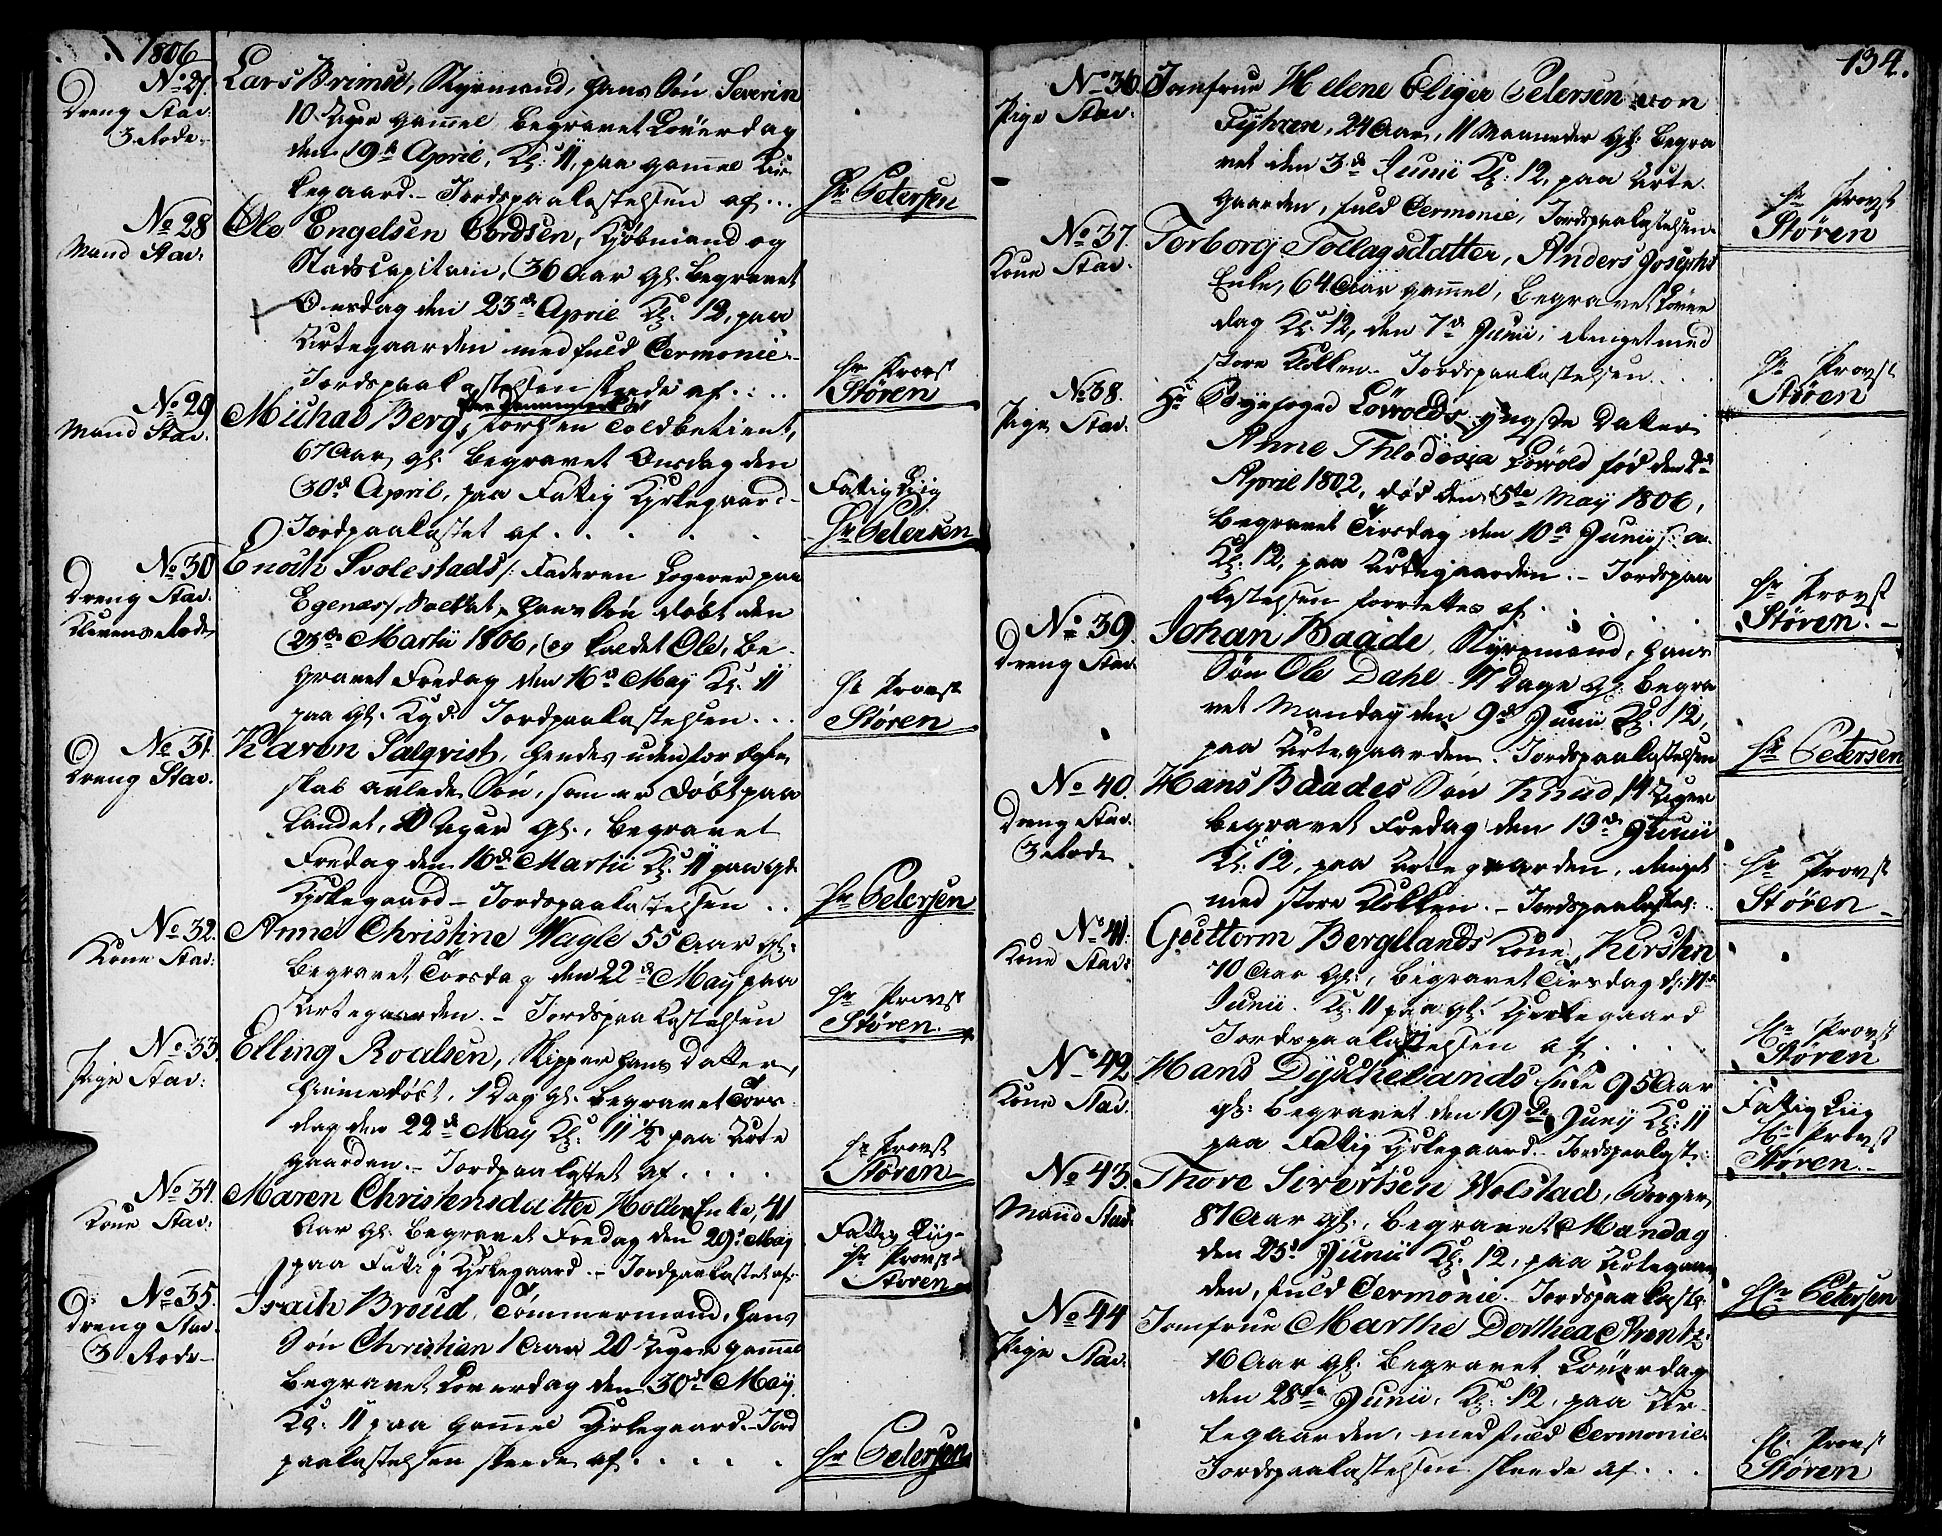 1806
No 27.
Dreng Stav.
3 Rode.
Lars Brimsø, Styrmand, hans Søn Severin
10 Uger gammel, Begravet Løverdag
den 19de April, Kl. 11, paa gammel Kir-
kegaard. - Jordspaakastelsen af...
Hr Petersen
No 28
Mand Stav.
Ole Engelsen Bordsen, Kjøbmand og
Stadscapitain, 36 Aar gl. begravet
Onsdag den 23de April Kl. 12, paa
Urtegaarden med fuld Cermonie.
Jordspaakastelsen skeede af....
Hr Provst
Støren
No 29
Mand Stav.
Michas Berg, forhen Toldbetient,
67 Aar gl. begravet Onsdag den
30de April, paa Fattig Kirkegaard
Jordpaakastet af . . . .
Fattig Liig
Hr Petersen
No 30
Dreng Stav.
Klevens Rode
Enoch Svolestads /: Faderen Logerer paa
Egenæs /: Soldat, hans Søn døbt den
23de Martii 1806, og kaldet Ole, be-
gravet Fredag den 16de May Kl. 11
paa gl. Kgd. Jordpaakastelsen...
Hr Provst
Støren
No 31.
Dreng Stav.
Karen Salqvist, hendes uden for Egte-
skab avlede Søn, som er døbt paa
Landet, 10 Uger gl., begravet
Fredag den 16de Martii Kl. 11 paa gl.
Kirkegaard - Jordspaakastelsen ..
Hr Petersen
No 32.
Kone Stav.
Anne Christine Wagle 55 Aar gl.
begravet Torsdag den 22de May paa
Urtegaarden. - Jordspaakastelsen
Hr Provst
Støren.
No 33.
Pige Stav:
Elling Roalsen, Skipper hans Datter,
hiemedøbt, 1 Dag gl. begravet Tors-
dag den 22de May Kl. 11 1/2 paa Urte
gaarden. - Jordpaakastet af . . . .
Hr Provst
Støren
No 34.
Kone Stav.
Maren Christensdatter Holte Enke, 41
Aar gl. begravet Fredag den 29de May
paa Fattig Kirkegaard. - Jordpaakastet af.
Fattig Liig
Hr Provst
Støren
No 35.
Dreng Stav.
3 Rode
Isach Broud, Tømmermand, hans
Søn Christian 1 Aar 20 Uger gammel
begravet Løverdag den 30de May
Kl. 11 paa gammel Kirkegaard - Jord
paakastelsen skeede af . . . . .
Hr Petersen
134.
No 36.
Pige Stav.
Jomfrue Helene Eliger Petersen von
Fyhren, 24 Aar, 11 Maaneder gl. begra
vet den 3de Junii Kl. 12, paa Urte-
gaarden, fuld Cermonie, Jordspaakastelsen
Hr Provst
Støren
No 37.
Kone Stav.
Torborg Tollagsdatter, Anders Josephs
Enke, 64 Aar gammel, begravet Løver
dag Kl. 12, den 7de Junii, ringet med
store Klokken. - Jordspaakastelsen...
Hr Provst
Støren
No 38.
Pige Stav.
Hr Byefoged Løvolds yngste Datter
Anne Thlodosea Løvold fød den 2de
April 1802, død den 5te May 1806,
begravet Tirsdag den 10de Junii s. a.
Kl. 12, paa Urtegaarden. - Jordspaa
kastelsen forrettes af. . . .
Hr Provst
Støren.
No 39.
Dreng Stav
Johan Baade, Styrmand, hans
Søn Ole Dahl 17 Dage gl. begra
vet Mandag den 9de Junii Kl. 12,
paa Urtegaarden. Jordspaakastelsen
Hr Petersen
No 40.
Dreng Stav.
3 Rode
Hans Baades Søn Knud, 14 Uger
begravet Fredag den 13de Junii
Kl. 12, paa Urtegaarden, ringet
med store Klokken. - Jordspaakastel:
Hr Provst
Støren
No 41.
Kone Stav.
Guttorm Bergelands Kone, Kirstin
70 Aar gl., begravet Tirsdag d. 17de
Junii. Kl. 11 paa gl. Kirkegaard
Jordspaakastelsen af . . . .
Hr Provst
Støren
No 42
Kone Stav.
Hans Dyschelands Enke 95 Aar
gl. begravet den 19de Junij Kl. 11
paa Fattig Kirkegaard. Jordspaakast.
Fattig Liig
Hr Provst
Støren.
No 43
Mand Stav.
Thore Sivertsen Wolstad, Borger
87 Aar gl., begravet Mandag
den 23de Junii Kl. 12, paa Urtegaar
den, fuld Cermonie. Jordspaakastel:
Hr Petersen
No 44
Pige Stav.
Jomfrue Marthe Dorthea Arentz.
16 Aar gl. begravet Løverdag
den 28de Junii, Kl. 12, paa Ur-
tegaarden, med fuld Cermonie
Jordspaakastelsen skeede af . . .
Hr. Provst
Støren